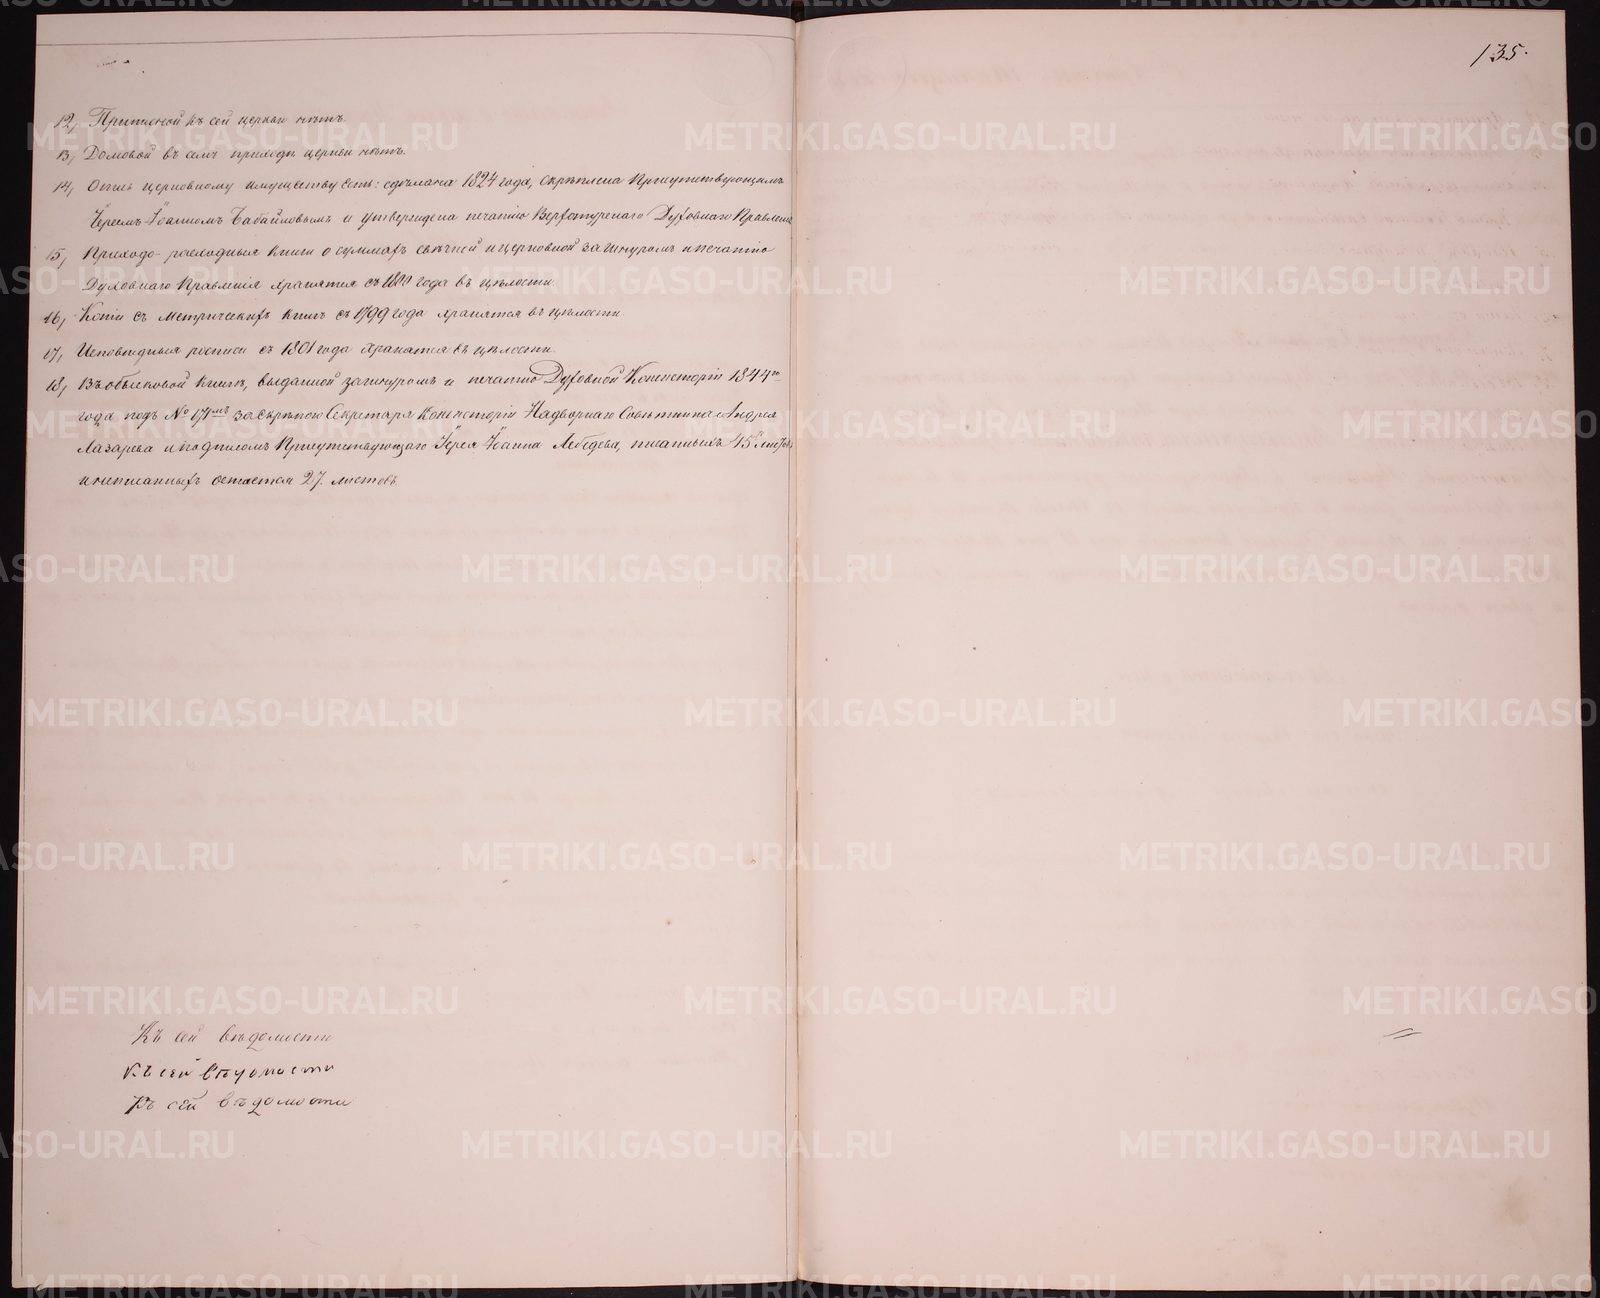 135.
12, Приписной къ сей церкви нѣтъ.
13, Домовой въ семъ приходѣ церкви нѣтъ.
14, Опись церковному имуществу есть: сдѣлана 1824 года, скрѣплена Присутствующимъ
Іереемъ Іоанномъ Бабайловымъ и утверждена печатію Верхотурскаго Духовнаго Правленія
15, Приходо-расходныя книги о суммахъ свѣчной и церковной за шнуромъ и печатію
Духовнаго Правленія хранятся съ года въ цѣлости.
16, Копіи съ Метрическихъ книгъ съ 1799 года хранятся въ цѣлости.
17, Исповѣдныя росписи съ 1801 года хранятся въ цѣлости.
18, Въ обыскной книгѣ, выданной за шнуромъ и печатію Духовной Консисторіи 1844го
года подъ № 171мъ за скрѣпою Секретаря Консисторіи Надворнаго Совѣтника Андрея
Лазарева и подписомъ Присутствующаго Іерея Іоанна Лебедева, писанныхъ 15
и неписанныхъ остается 27. листовъ.
Къ сей вѣдомости
Къ сей вѣдомости
Къ сей вѣдомости
METRIKI.GASO-URAL.RU